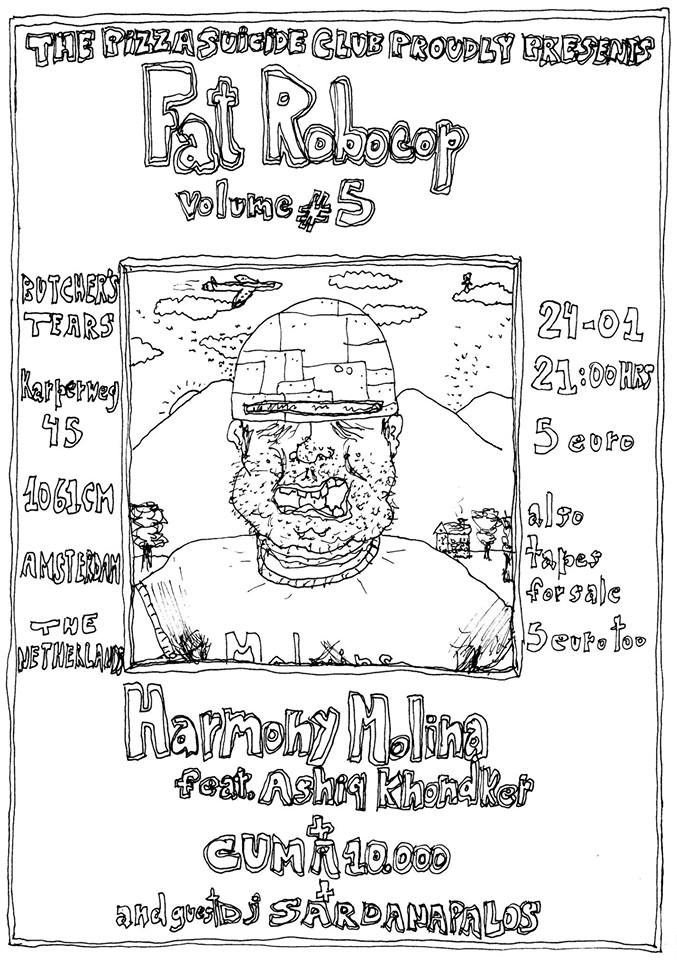 THE PIZZA SUICIDE CLUB PROUDLY PRESENTS
Fat Robocop
Volume #5
BUTCHER'S
TEARS
Karperweg
45
1061CM
AMSTERDAM
THE
NETHERLANDS
24-01
21:00HRS
5 euro
also
tapes
for sale
5 euro too
Harmony Molina
feat. Ashiq Khondker
+
CUM A 10.000
+
and guest Dj SARDANAPALOS